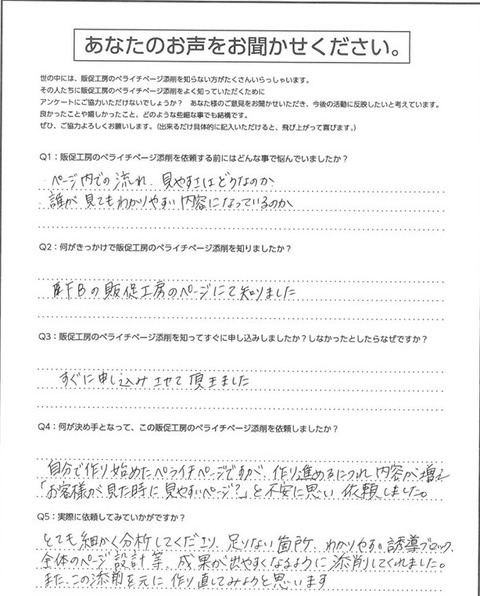 あなたのお声をお聞かせください。
世の中には、販促工房のペライチページ添削を知らない方がたくさんいらっしゃいます。
その人たちに販促工房のペライチページ添削をよく知っていただくために
アンケートにご協力いただけないでしょうか？　あなた様のご意見をお聞かせいただき、今後の活動に反映したいと考えています。
良かったことや嬉しかったこと、どのような些細な事でも結構です。
ぜひ、ご協力よろしくお願いします。（出来るだけ具体的に記入いただけると、飛び上がって喜びます。）
Q1：販促工房のペライチページ添削を依頼する前にはどんな事で悩んでいましたか？
ページ内での流れ、見やすさはどうなのか
誰が見てもわかりやすい内容になっているのか
Q2：何がきっかけで販促工房のペライチページ添削を知りましたか？
FBの販促工房のページにて知りました
Q3：販促工房のペライチページ添削を知ってすぐに申し込みしましたか？しなかったとしたらなぜですか？
すぐに申し込みさせて頂きました
Q4：何が決め手となって、この販促工房のペライチページ添削を依頼しましたか？
自分で作り始めたペライチページですが、作り進めるにつれ内容が増え
「お客様が見た時に見やすいページ？」と不安に思い依頼しました。
Q5：実際に依頼してみていかがですか？
とても細かく分析してくださり、足りない箇所、わかりやすい誘導ブロック、
全体のページ設計等、成果が出やすくなるように添削してくれました。
また、この添削を元に作り直してみようと思います